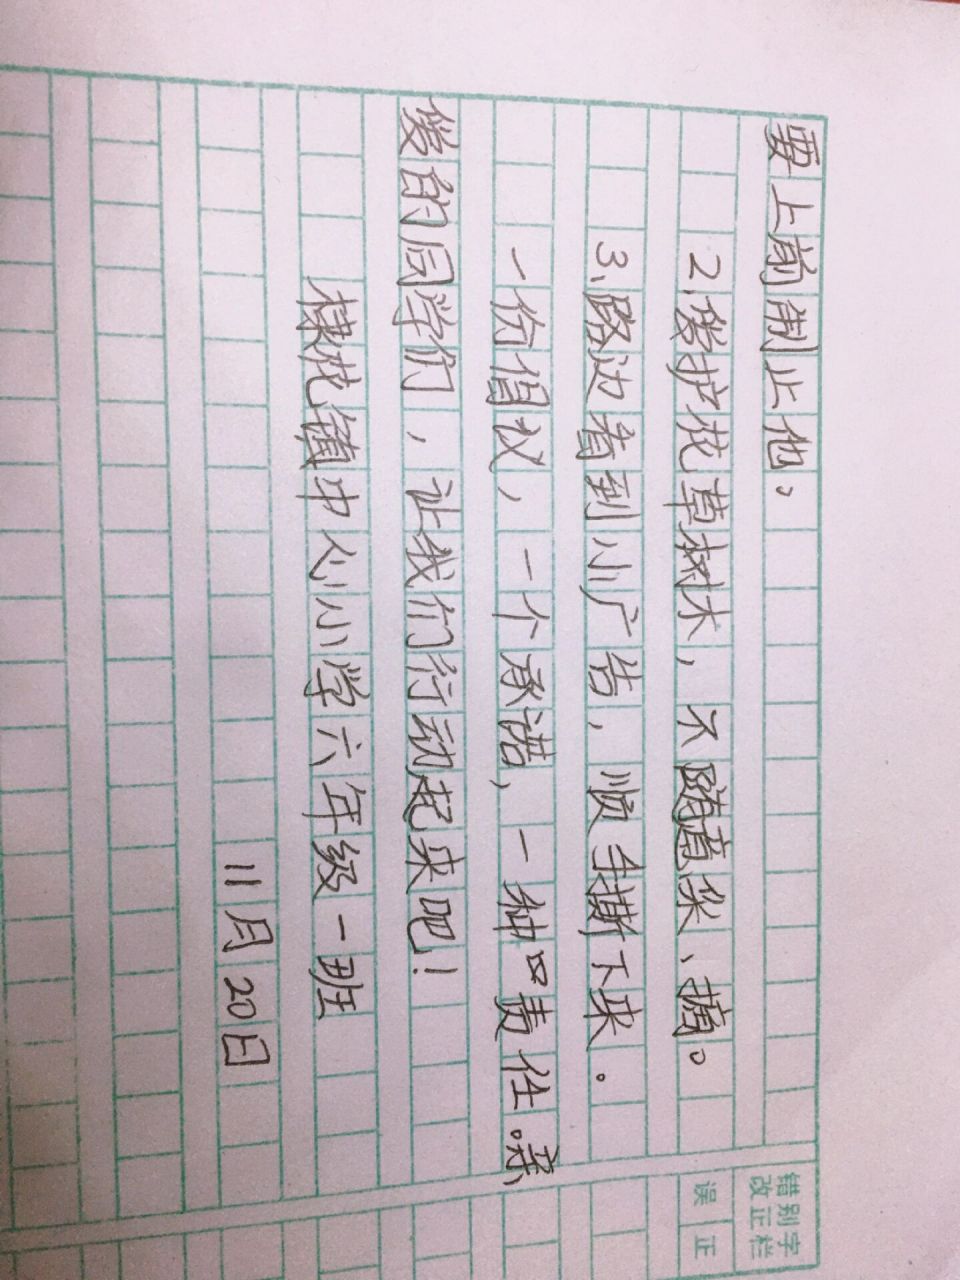 要上前制止他。
2.爱护花草树木，不随意采、摘。
3.路边看到小广告，顺手撕下来。
一份倡议，一个承诺，一种啧任。亲
爱的同学们，让我们行动起来吧！
棣花镇中心小学六年级一班
11月20日
错别字
改正栏
误 正